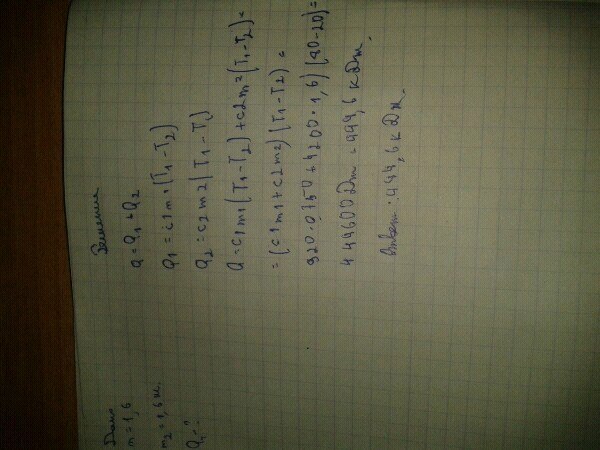 Дано
m = 1,6
m2 = 1,6 кг
Q - ?
Решение
Q = Q1 + Q2
Q1 = c1m1(T1-T2)
Q2 = c2m2(T1-T2)
Q = c1m1(T1-T2) + c2m2(T1-T2) =
= (c1m1 + c2m2)(T1-T2) =
920·0,750 + 4200·1,6)(80-20) =
444600 Дж = 444,6 кДж.
Ответ: 444,6 кДж.